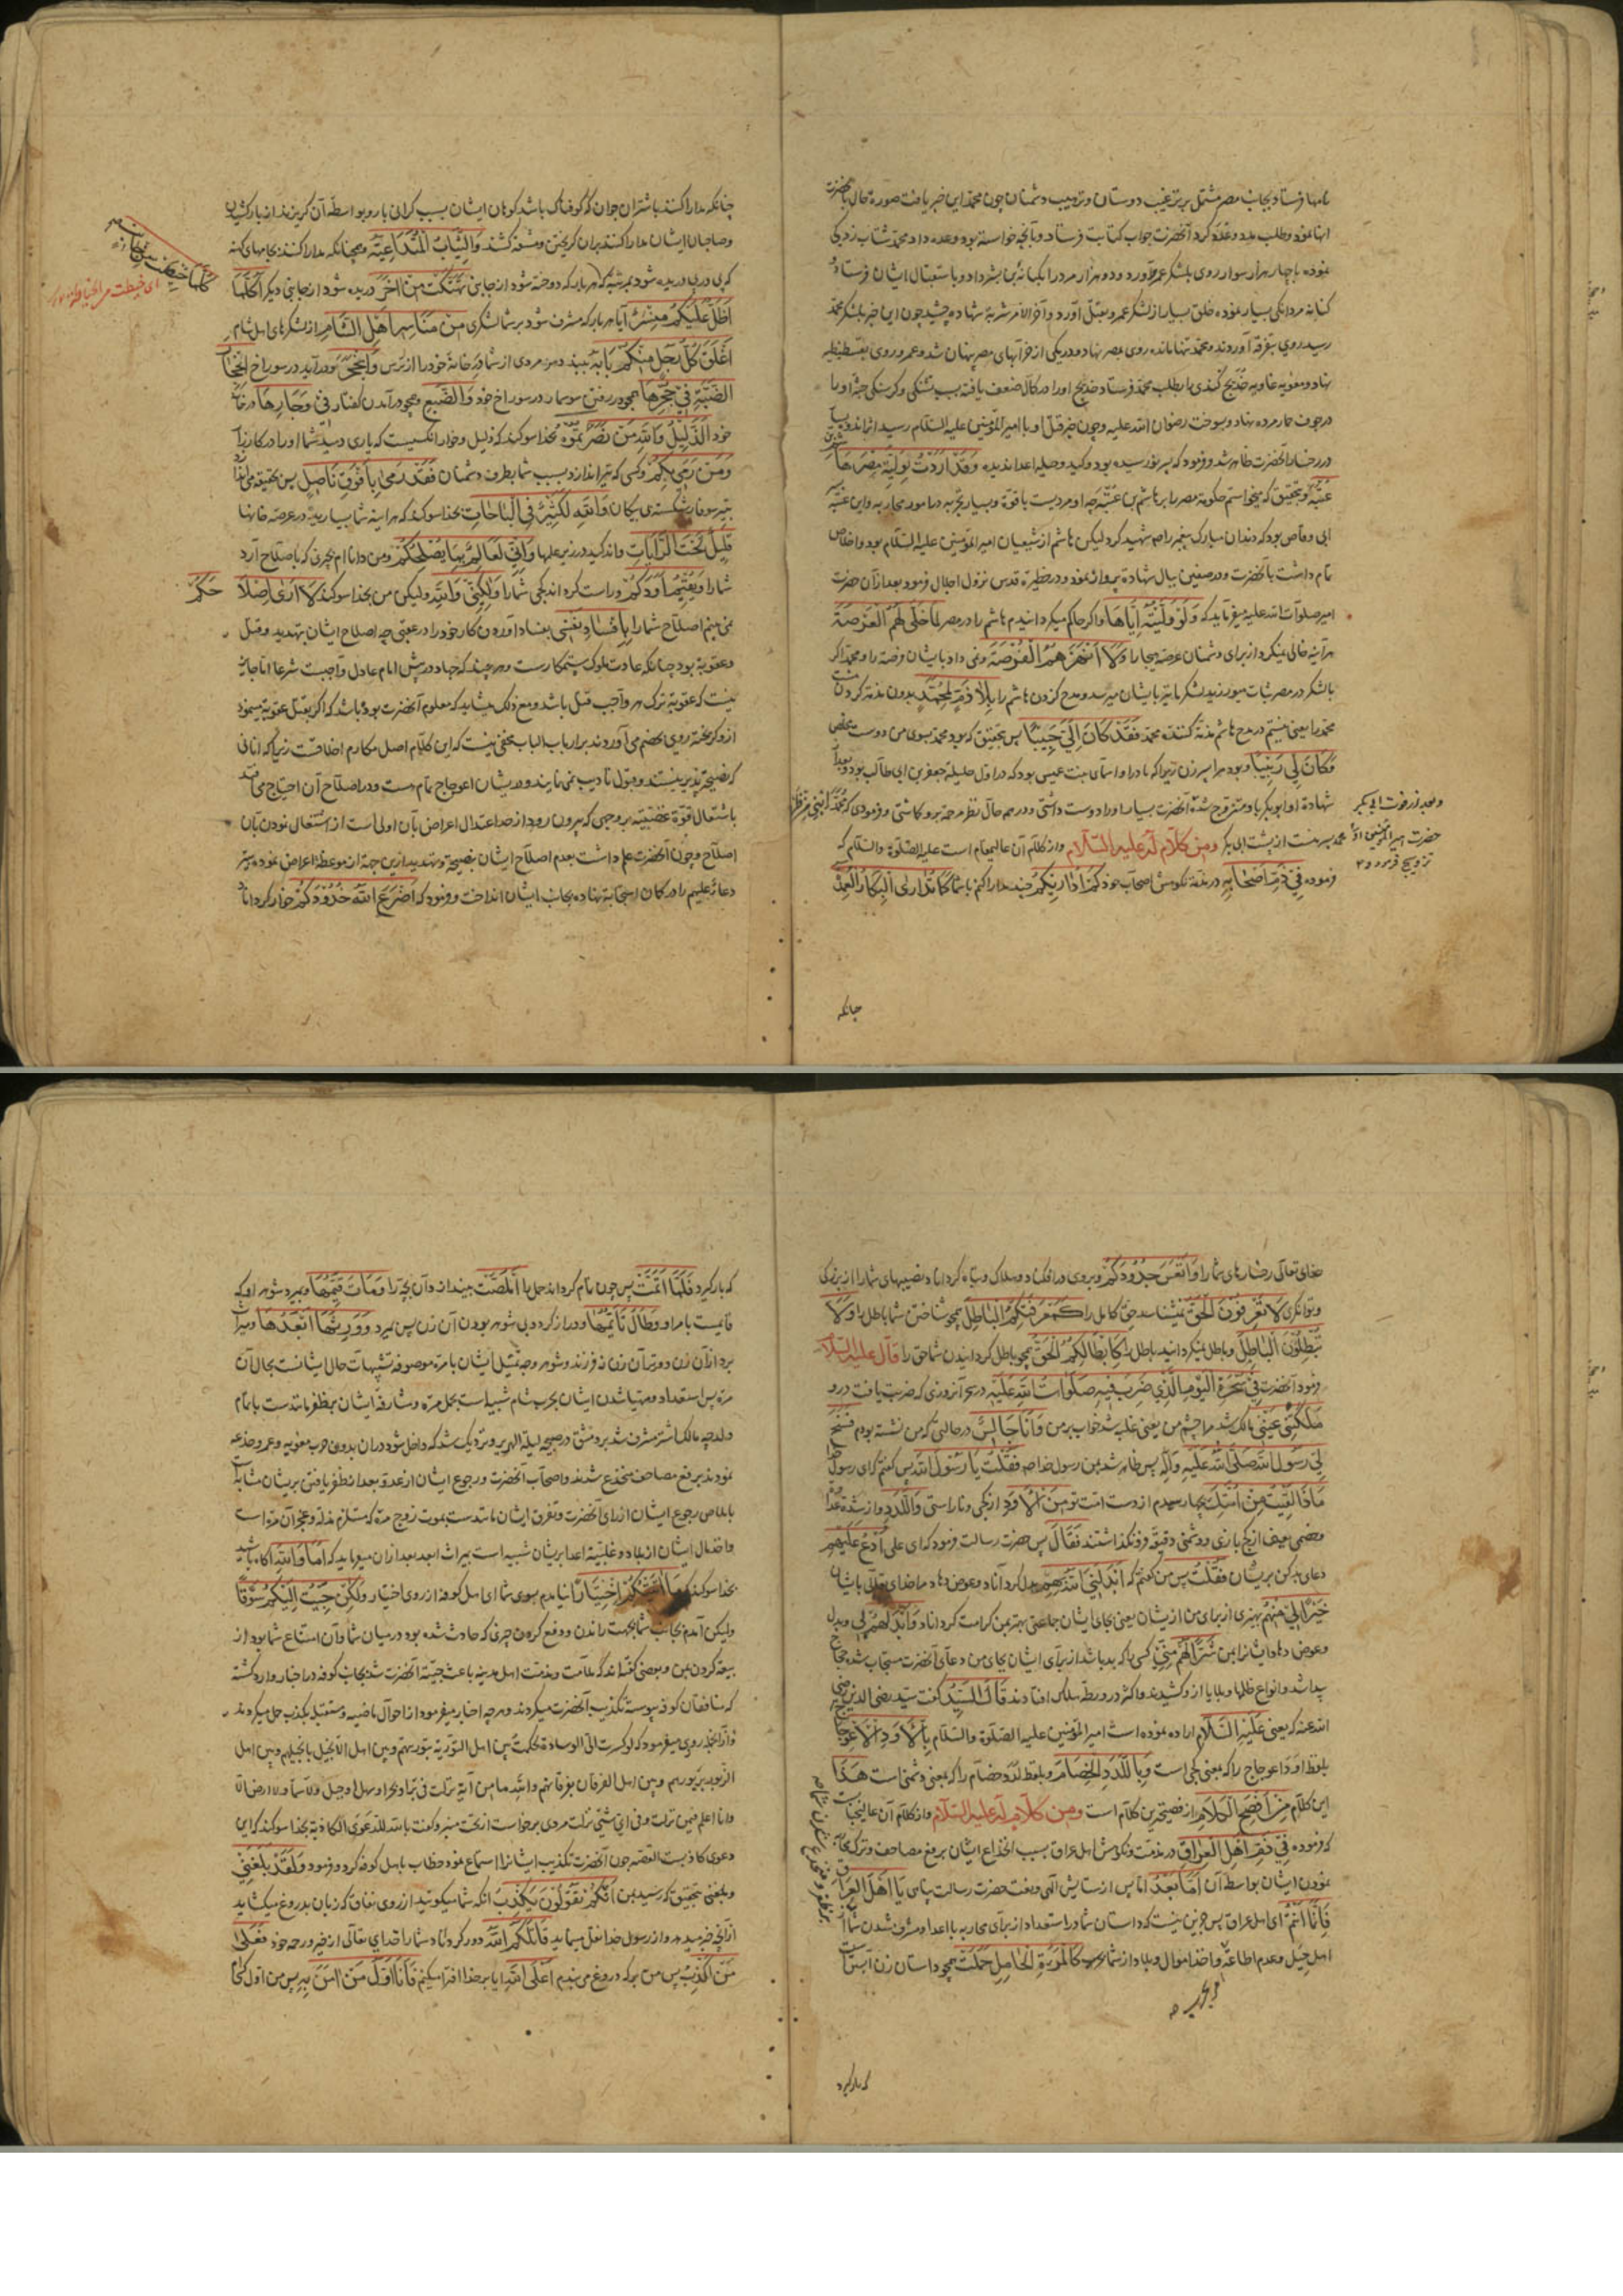 نامها فرستاد بجانب مصر مشتمل بر ترغیب دوستان و ترهیب دشمنان چون محمد این خبر یافت صورة حال بآنحضرت
انها نمود و طلب مدد و عدد کرد آنحضرت جواب کتابت فرستاد و بآنچه خواسته بود وعده داد محمد شتاب زدگی
نموده با چهار هزار سوار روی بلشکر عمرو آورد و دو هزار مرد را بکنانة بن بشر داد و باستقبال ایشان فرستاد
کنانه مردانگی بسیار نموده خلق بسیار از لشکر عمرو بقتل آورد و آخر الامر شربة شهادة چشید چون این خبر بلشکر محمد
رسید روی بتفرقه آوردند و محمد تنها مانده روی بمصر نهاد و در یکی از خرابهای مصر پنهان شد و عمرو روی بفسطاط
نهاد و معویه غاویه خدیج کندی را بطلب محمد فرستاد خدیج او را در کمال ضعف یافته بسبب تشنگی و گرسنگی جثه او را
در جوف حمار مرده نهاد و بسوخت رضوان الله علیه و چون خبر قتل او با امیر المؤمنین علیه السلام رسید اثر اندوه بسیار
در رخسار آنحضرت ظاهر شد و فرمود که وَقَدْ اَرَدْتُ تَوْلِیَةَ مِصْرَ هَاشِمَ بْنَ
عُتْبَة و بتحقیق که میخواستم حکومة مصر را بر هاشم بن عتبة چه او مردیست با قوة و بسیار تجربه در امور محاربه و این عتبه
ابی وقاص بود که دندان مبارک پیغمبر را صم شهید کرد لیکن هاشم از شیعیان امیر المؤمنین علیه السلام بود و اخلاص
تمام داشت با آنحضرت و در صفین ببال شهادة پرواز نمود و در حظیرة قدس نزول اجلال فرمود بعد از آن حضرت
امیر صلوات الله علیه میفرماید که وَلَوْ وَلَّیْتُهُ اِیَّاهَا و اگر حاکم میگردانیدم هاشم را در مصر لَمَا خَلّٰی لَهُمُ الْعَرْصَةَ
هر آینه خالی نمیکرد از برای دشمنان عرصه هیجا را وَلَا اَنْهَزَهُمُ الْفُرْصَةَ و نمی داد بایشان فرصة را و محمد اگر
با لشکر در مصر ثبات میورزید لشکر ما نیز بایشان میرسید و مدح کردن هاشم را بِلَا ذَمٍّ لِمُحَمَّدٍ بدون مذمة کردن
محمد را یعنی نیستم در مدح هاشم مذمة کننده محمد فَقَدْ کَانَ اِلَیَّ حَبِیْبًا پس بتحقیق که بود محمد بسوی من دوست مخلص
وَکَانَ لِی رَبِیْبًا و بود مرا پسر زن زیرا که مادر او اسمآی بنت عمیس بود که در اول حلیله جعفر بن ابی طالب بود و بعد از
شهادة او ابو بکر باو متزوج شد آنحضرت بسیار او را دوست داشتی و در همه حال نظر مرحمة برو کاشتی و فرمودی که مُحَمَّدٌ ابْنِی مِنْ ظَهْرِ
محمد پسر منست از پشت ابی بکر ومن کلام له علیه السلام و از کلام آن عالیمقام است علیه الصلوة والسلام که
فرموده فِیْ ذَمِّ اَصْحَابِهٖ در مذمة نکوهش اصحاب خود کَمْ اُدَارِیْکُمْ چند مدارا کنم با شما کَمَا تُدَارَی الْبِکَارُ الْعَمِدَةُ
و بعد از فوت ابی بکر
حضرت امیر المؤمنین او را
تزویج فرمود
چنانکه
چنانکه مدارا کنند با شتران جوان که کوفناک باشد کوهان ایشان بسبب گرانی بار و بواسطه آن گریزند از بار کشیدن
و صاحبان ایشان مدارا کنند بدان گریختن و مشقة کشند وَالثِّیَابُ الْمُتَدَاعِیَةُ و همچنانکه مدارا کنند بجامهای کهنه
که پی در پی دریده شود بمرتبه که هر بار که دوخته شود از جانبی تَهَتَّکَتْ مِنْ اٰخَرَ دریده شود از جانبی دیگر اَکُلَّمَا
اَظَلَّ عَلَیْکُمْ مَنْسِرٌ آیا هر بار که مشرف شود بر شما لشکری مِنْ مَنَاسِرِ اَهْلِ الشَّامِ از لشکرهای اهل شام
اَغْلَقَ کُلُّ رَجُلٍ مِنْکُمْ بَابَهُ ببندد هر مردی از شما در خانه خود را از ترس وَانْجَحَرَ و درآید در سوراخ انْجِحَارَ
الضَّبَّةِ فِیْ جُحْرِهَا همچو در رفتن سوسمار در سوراخ خود وَالضَّبُعِ و همچو درآمدن کفتار فِیْ وِجَارِهَا در خانه
خود الذَّلِیْلُ وَاللّٰهِ مَنْ نَصَرْتُمُوْهُ بخدا سوگند که ذلیل و خوار آنکسیست که یاری دهید شما او را در کارزار
وَمَنْ رُمِیَ بِکُمْ و کسی که تیر اندازد بسبب شما بطرف دشمنان فَقَدْ رُمِیَ بِاَفْوَقَ نَاصِلٍ پس بتحقیق می اندازد
بتیر سوفار شکسته بی پیکان وَاللّٰهِ لَکَثِیْرٌ فِی الْبَاحَاتِ بخدا سوگند که هر آینه شما بسیارید در عرصه خانها
قَلِیْلٌ تَحْتَ الرَّایَاتِ و اندکید در زیر علمها وَاِنِّی لَعَالِمٌ بِمَا یُصْلِحُکُمْ و من دانا ام بچیزی که باصلاح آرد
شما را وَیُقِیْمُ اَوَدَکُمْ و راست گرداند کجی شما را وَلٰکِنِّیْ وَاللّٰهِ و لیکن من بخدا سوگند لَا اَرٰی اِصْلَاحَکُمْ
نمی بینم اصلاح شما را بِاِفْسَادِ نَفْسِیْ بفساد آوردن کار خود را در عقبی چه اصلاح ایشان بتهدید و قتل
و عقوبة بود چنانکه عادت ملوک ستمکارست و هر چند که جهاد در پیش امام عادل واجبست شرعا اما جایز
نیست که عقوبة ترک هر واجب قتل باشد و مع ذلک میشاید که معلوم آنحضرت بوده باشد که اگر بقتل عقوبة مینمود
ازو گریخته روی بخصم می آوردند بر ارباب الباب مخفی نیست که این کلام اصل مکارم اخلاقست زیرا که آنانی
که نصیحة پذیر نیستند و قبول تأدیب نمی نمایند و در ایشان اعوجاج تمام هست و در اصلاح آن احتیاج می افتد
باشتعال قوّة غضبیّه بر وجهی که بیرون رود از حد اعتدال اعراض بآن اولی است از اشتغال نمودن بآن
اصلاح و چون آنحضرت علم داشت بعدم اصلاح ایشان بنصیحة و تهدید ازین جهة از موعظة اعراض نموده تیر
دعاء علیهم را در کمان استجابة نهاده بجانب ایشان انداخت و فرمود که اَضْرَعَ اللّٰهُ خُدُوْدَکُمْ خوار گرداناد
کُلَّمَا خِیْطَتْ مِنْ جَانِبٍ
خدای تعالی رخسارهای شما را وَاَتْعَسَ جُدُوْدَکُمْ و بروی در افکناد و هلاک و تباه گرداناد نصیبهای شما را از بزرگی
و توانگری لَا تَعْرِفُوْنَ الْحَقَّ نمیشناسید حق کامل را کَمَعْرِفَتِکُمُ الْبَاطِلَ همچو شناختن شما باطل را وَلَا
تُبْطِلُوْنَ الْبَاطِلَ و باطل نمیگردانید باطل را کَاِبْطَالِکُمُ الْحَقَّ همچو باطل گردانیدن شما حق را قال علیه السلام
فرمود آنحضرت فِیْ سُحْرَةِ الْیَوْمِ الَّذِیْ ضُرِبَ فِیْهِ صَلَوَاتُ اللّٰهِ عَلَیْهِ در سحر آنروزی که ضربت یافت درو
مَلَکَتْنِیْ عَیْنِیْ مالک شد مرا چشم من یعنی غلبه شد خواب بر من وَاَنَا جَالِسٌ در حالتی که من نشسته بودم فَسَنَحَ
لِیْ رَسُوْلُ اللّٰهِ صَلَّی اللّٰهُ عَلَیْهِ وَاٰلِهٖ پس ظاهر شد بمن رسول خدا صم فَقُلْتُ یَا رَسُوْلَ اللّٰهِ پس گفتم که ای رسول خدا
مَاذَا لَقِیْتُ مِنْ اُمَّتِکَ چها رسیدم از دست امت تو مِنَ الْاَوَدِ از کجی و ناراستی وَاللَّدَدِ و از شدة عداوت
و خصمی یعنی از کج بازی و دشمنی دقیقه فرو نگذاشتند فَقَالَ پس حضرت رسالت فرمود که ای علی اُدْعُ عَلَیْهِمْ
دعای بد کن بر ایشان فَقُلْتُ پس من گفتم که اَبْدَلَنِیَ اللّٰهُ بِهِمْ بدل گرداناد و عوض دهاد مرا خدای تعالی بایشان
خَیْرًا لِیْ مِنْهُمْ بهتری از برای من از ایشان یعنی بجای ایشان جماعتی بهتر بمن کرامت گرداناد وَاَبْدَلَهُمْ بِیْ و بدل
و عوض دهاد ایشان را بمن شَرًّا لَهُمْ مِنِّیْ کسی را که بد باشد از برای ایشان بجای من دعآی آنحضرت مستجاب شد حجاج
پیدا شد و انواع ظلمها و بلایا ازو کشیدند و اکثر در ورطه هلاک افتادند قَالَ السَّیِّدُ گفت سید رضی الدین رضی
الله عنه که یعنی عَلَیْهِ السَّلَامُ اراده نموده است امیر المؤمنین علیه الصلوة والسلام بِالْاَوَدِ الْاِعْوِجَاجَ
بلفظ اود اعوجاج را که بمعنی کجی است وَبِاللَّدَدِ الْخِصَامَ و بلفظ لدد خصام را که بمعنی دشمنی است هٰذَا
این کلام مِنْ اَفْصَحِ الْکَلَامِ از فصیحترین کلام است ومن کلام له علیه السلام و از کلام آن عالیجنابست
که فرموده فِیْ ذَمِّ اَهْلِ الْعِرَاقِ در مذمت و نکوهش اهل عراق بسبب انخداع ایشان برفع مصاحف و ترک محاربه
نمودن ایشان بواسطه آن اَمَّا بَعْدُ اما پس از ستایش الهی و نعت حضرت رسالت پناهی یَا اَهْلَ الْعِرَاقِ
فَاِنَّمَا اَنْتُمْ ای اهل عراق پس جز این نیست که داستان شما در استعداد از برای محاربه با اعدا و مشرف شدن شما
اهل حیل و عدم اطاعة و اخذ اموال و بلاد از شما کَالْمَرْأَةِ الْحَامِلِ حَمَلَتْ همچو داستان زن آبستنست
که بار گیرد
که بار گیرد فَلَمَّا اَتَمَّتْ پس چون تمام گرداند حمل را اَمْلَصَتْ بیندازد آن بچه را وَمَاتَ قَیِّمُهَا و بمیرد شوهر او که
قایمست بامر او وَطَالَ تَاَیُّمُهَا و دراز گردد بی شوهر بودن آن زن پس بمیرد وَوَرِثَهَا اَبْعَدُهَا و میراث
برد از آن زن دورتر آن زن نه فرزند و شوهر وجه تمثیل ایشان بامرة موصوفه تشبیهات حال ایشانست بحال آن
مرة پس استعداد و مهیا شدن ایشان بحرب شام شبیه است بحمل مرة و مشارفه ایشان بظفر مانندست باتمام
ولد چه مالک اشتر مشرف شد بر دمشق در صبیحه لیلة الهریر و نزدیک شد که داخل شود در آن بدون حرب معویه و عمرو خدعه
نمودند برفع مصاحف منخدع شدند و اصحاب آنحضرت و رجوع ایشان از عدو بعد از ظفر یافتن بر ایشان مشابهست
باملاص رجوع ایشان از رای آنحضرت و تفرق ایشان مانندست بموت زوج مرة که مستلزم مذلة و عجز آن مرة است
و اخذ اموال ایشان از بلاد و غلبه اعدا بر ایشان شبیه است بمیراث ابعد بعد از آن میفرماید که اَمَا وَاللّٰهِ آگاه باشید
بخدا سوگند که مَا اَتَیْتُکُمْ اخْتِیَارًا نیامدم بسوی شما ای اهل کوفه از روی اختیار وَلٰکِنْ جِئْتُ اِلَیْکُمْ سَوْقًا
ولیکن آمدم بجانب شما بجهت راندن و دفع کردن چیزی که حادث شده بود در میان شما و آن امتناع شما بود از
بیعة کردن بمن و بعضی گفته اند که ملامت و مذمت اهل مدینه باعث جیئت آنحضرت شد بجانب کوفه در اخبار وارد گشته
که منافقان کوفه پیوسته تکذیب آنحضرت میکردند و هر چه اخبار میفرمود از احوال ماضیه و مستقبله بکذب حمل میکردند
و از آنجمله روزی میفرمود که لو کسرت لی الوسادة لحکمت بین اهل التوریة بتوریتهم و بین اهل الانجیل بانجیلهم و بین اهل
الزبور بزبورهم و بین اهل الفرقان بفرقانهم والله ما من آیة نزلت فی بر او بحر او سهل او جبل ولا سماء ولا ارض الا
وانا اعلم فیمن نزلت و فی ای شیئ نزلت مردی برخواست از تحت منبر و گفت بالله للدعوی الکاذبة بخدا سوگند که این
دعوی کاذبست القصه چون آنحضرت تکذیب ایشان را استماع نمود خطاب باهل کوفه کرد و فرمود وَلَقَدْ بَلَغَنِیْ
و بتحقیق که رسید بمن اَنَّکُمْ تَقُوْلُوْنَ یَکْذِبُ آنکه شما میگوئید از روی نفاق که زبان بدروغ میگشاید
از آنچه خبر میدهد و از رسول خدا نقل مینماید قَاتَلَکُمُ اللّٰهُ دور گرداناد شما را خدای تعالی از خیر و رحمة خود فَعَلٰی
مَنْ اَکْذِبُ پس من بر که دروغ می بندم اَعَلَی اللّٰهِ آیا بر خدا افترا میکنم فَاَنَا اَوَّلُ مَنْ اٰمَنَ بِهٖ پس من اول کسی